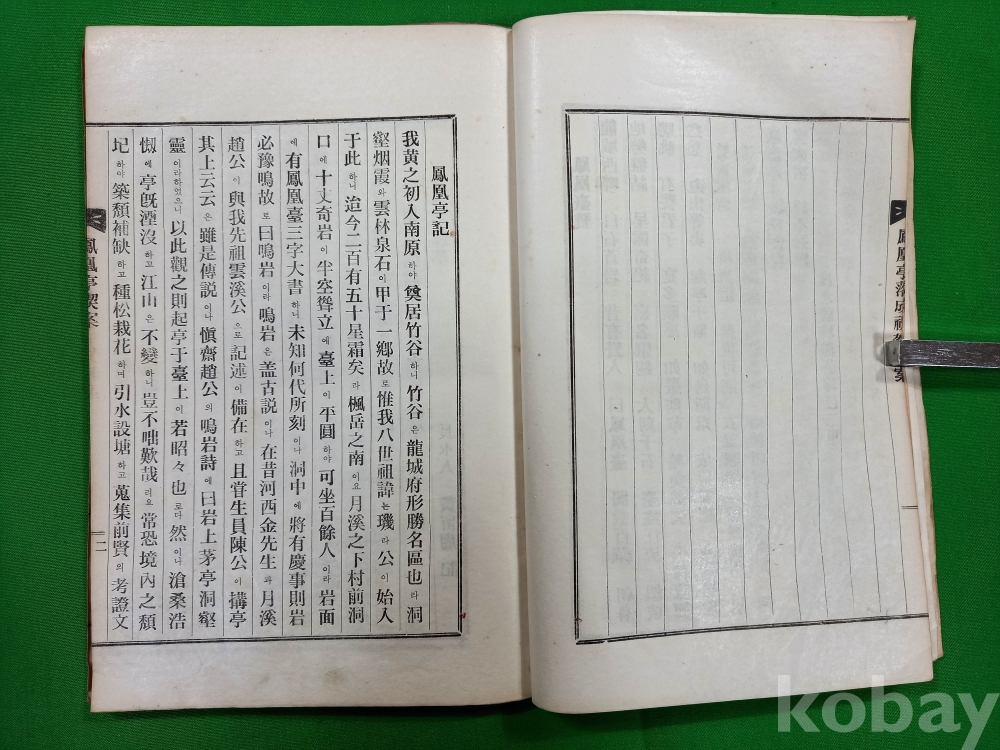 鳳凰亭記
我黃之初入南原하야奠居竹谷하니竹谷은龍城府形勝名區也라洞
壑烟霞와雲林泉石이甲于一鄕故로惟我八世祖諱는璣라公이始入
于此하니迨今二百有五十星霜矣라楓岳之南이요月溪之下村前洞
口에十丈奇岩이半空聳立에臺上이平圓하야可坐百餘人이라岩面
에有鳳凰臺三字大書하니未知何代所刻이나洞中에將有慶事則岩
必豫鳴故로曰鳴岩이라鳴岩은盖古説이나在昔河西金先生와月溪
趙公이與我先祖雲溪公으로記述이備在하고且甞生員陳公이搆亭
其上云云은雖是傳説이나愼齋趙公의鳴岩詩에曰岩上茅亭洞壑
靈이라하엿으니以此觀之則起亭于臺上이若昭々也로다然이나滄桑浩
㥘에亭旣湮沒하고江山은不變하니豈不咄歎哉리요常恐境內之頹
圮하야築頹補缺하고種松栽花하며引水設塘하고蒐集前賢의考證文
鳳凰亭契案
二
鳳凰亭落成
案
kobay